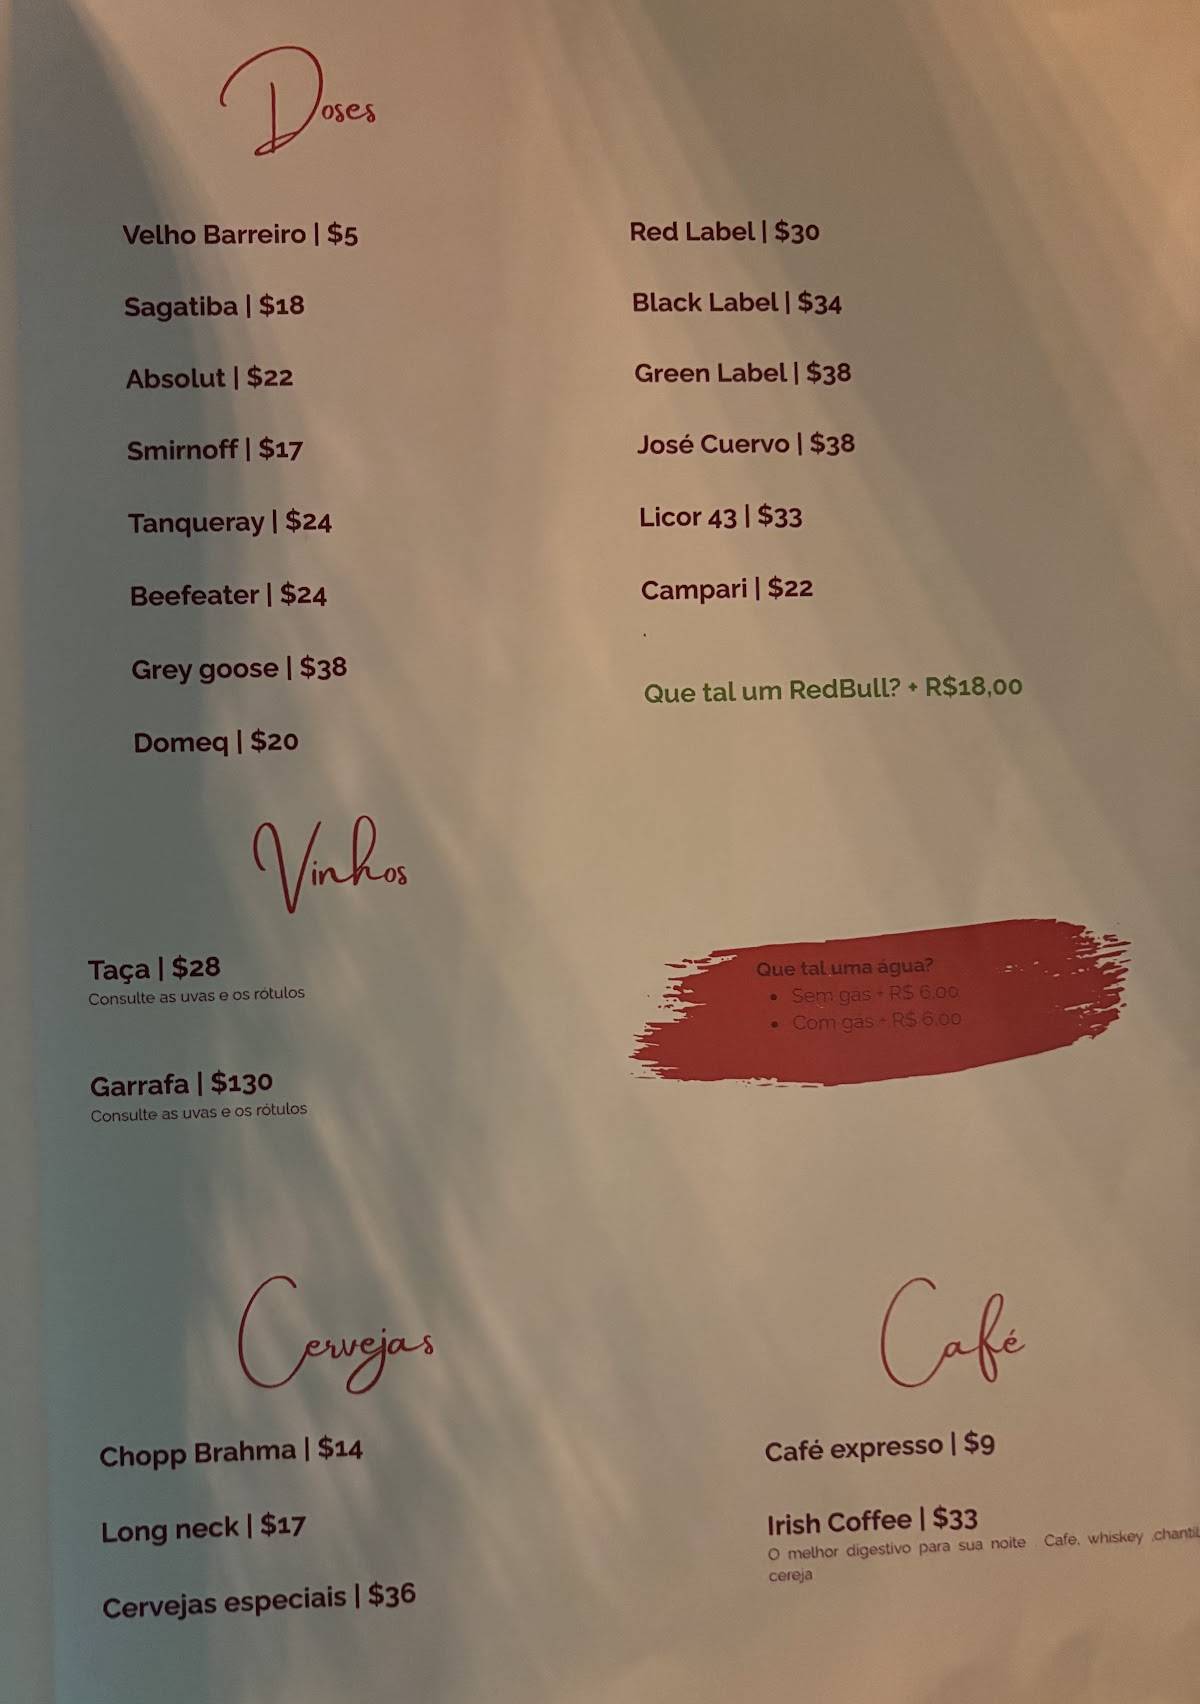 Doses
Velho Barreiro | $5
Sagatiba | $18
Absolut | $22
Smirnoff | $17
Tanqueray | $24
Beefeater | $24
Grey goose | $38
Domeq | $20
Red Label | $30
Black Label | $34
Green Label | $38
José Cuervo | $38
Licor 43 | $33
Campari | $22
.
Que tal um RedBull? + R$18,00
Vinhos
Taça | $28
Consulte as uvas e os rótulos
Garrafa | $130
Consulte as uvas e os rótulos
Que tal uma água?
• Sem gas + R$ 6,00
• Com gás + R$ 6,00
Cervejas
Chopp Brahma | $14
Long neck | $17
Cervejas especiais | $36
Café
Café expresso | $9
Irish Coffee | $33
O melhor digestivo para sua noite . Cafe, whiskey ,chantil
cereja